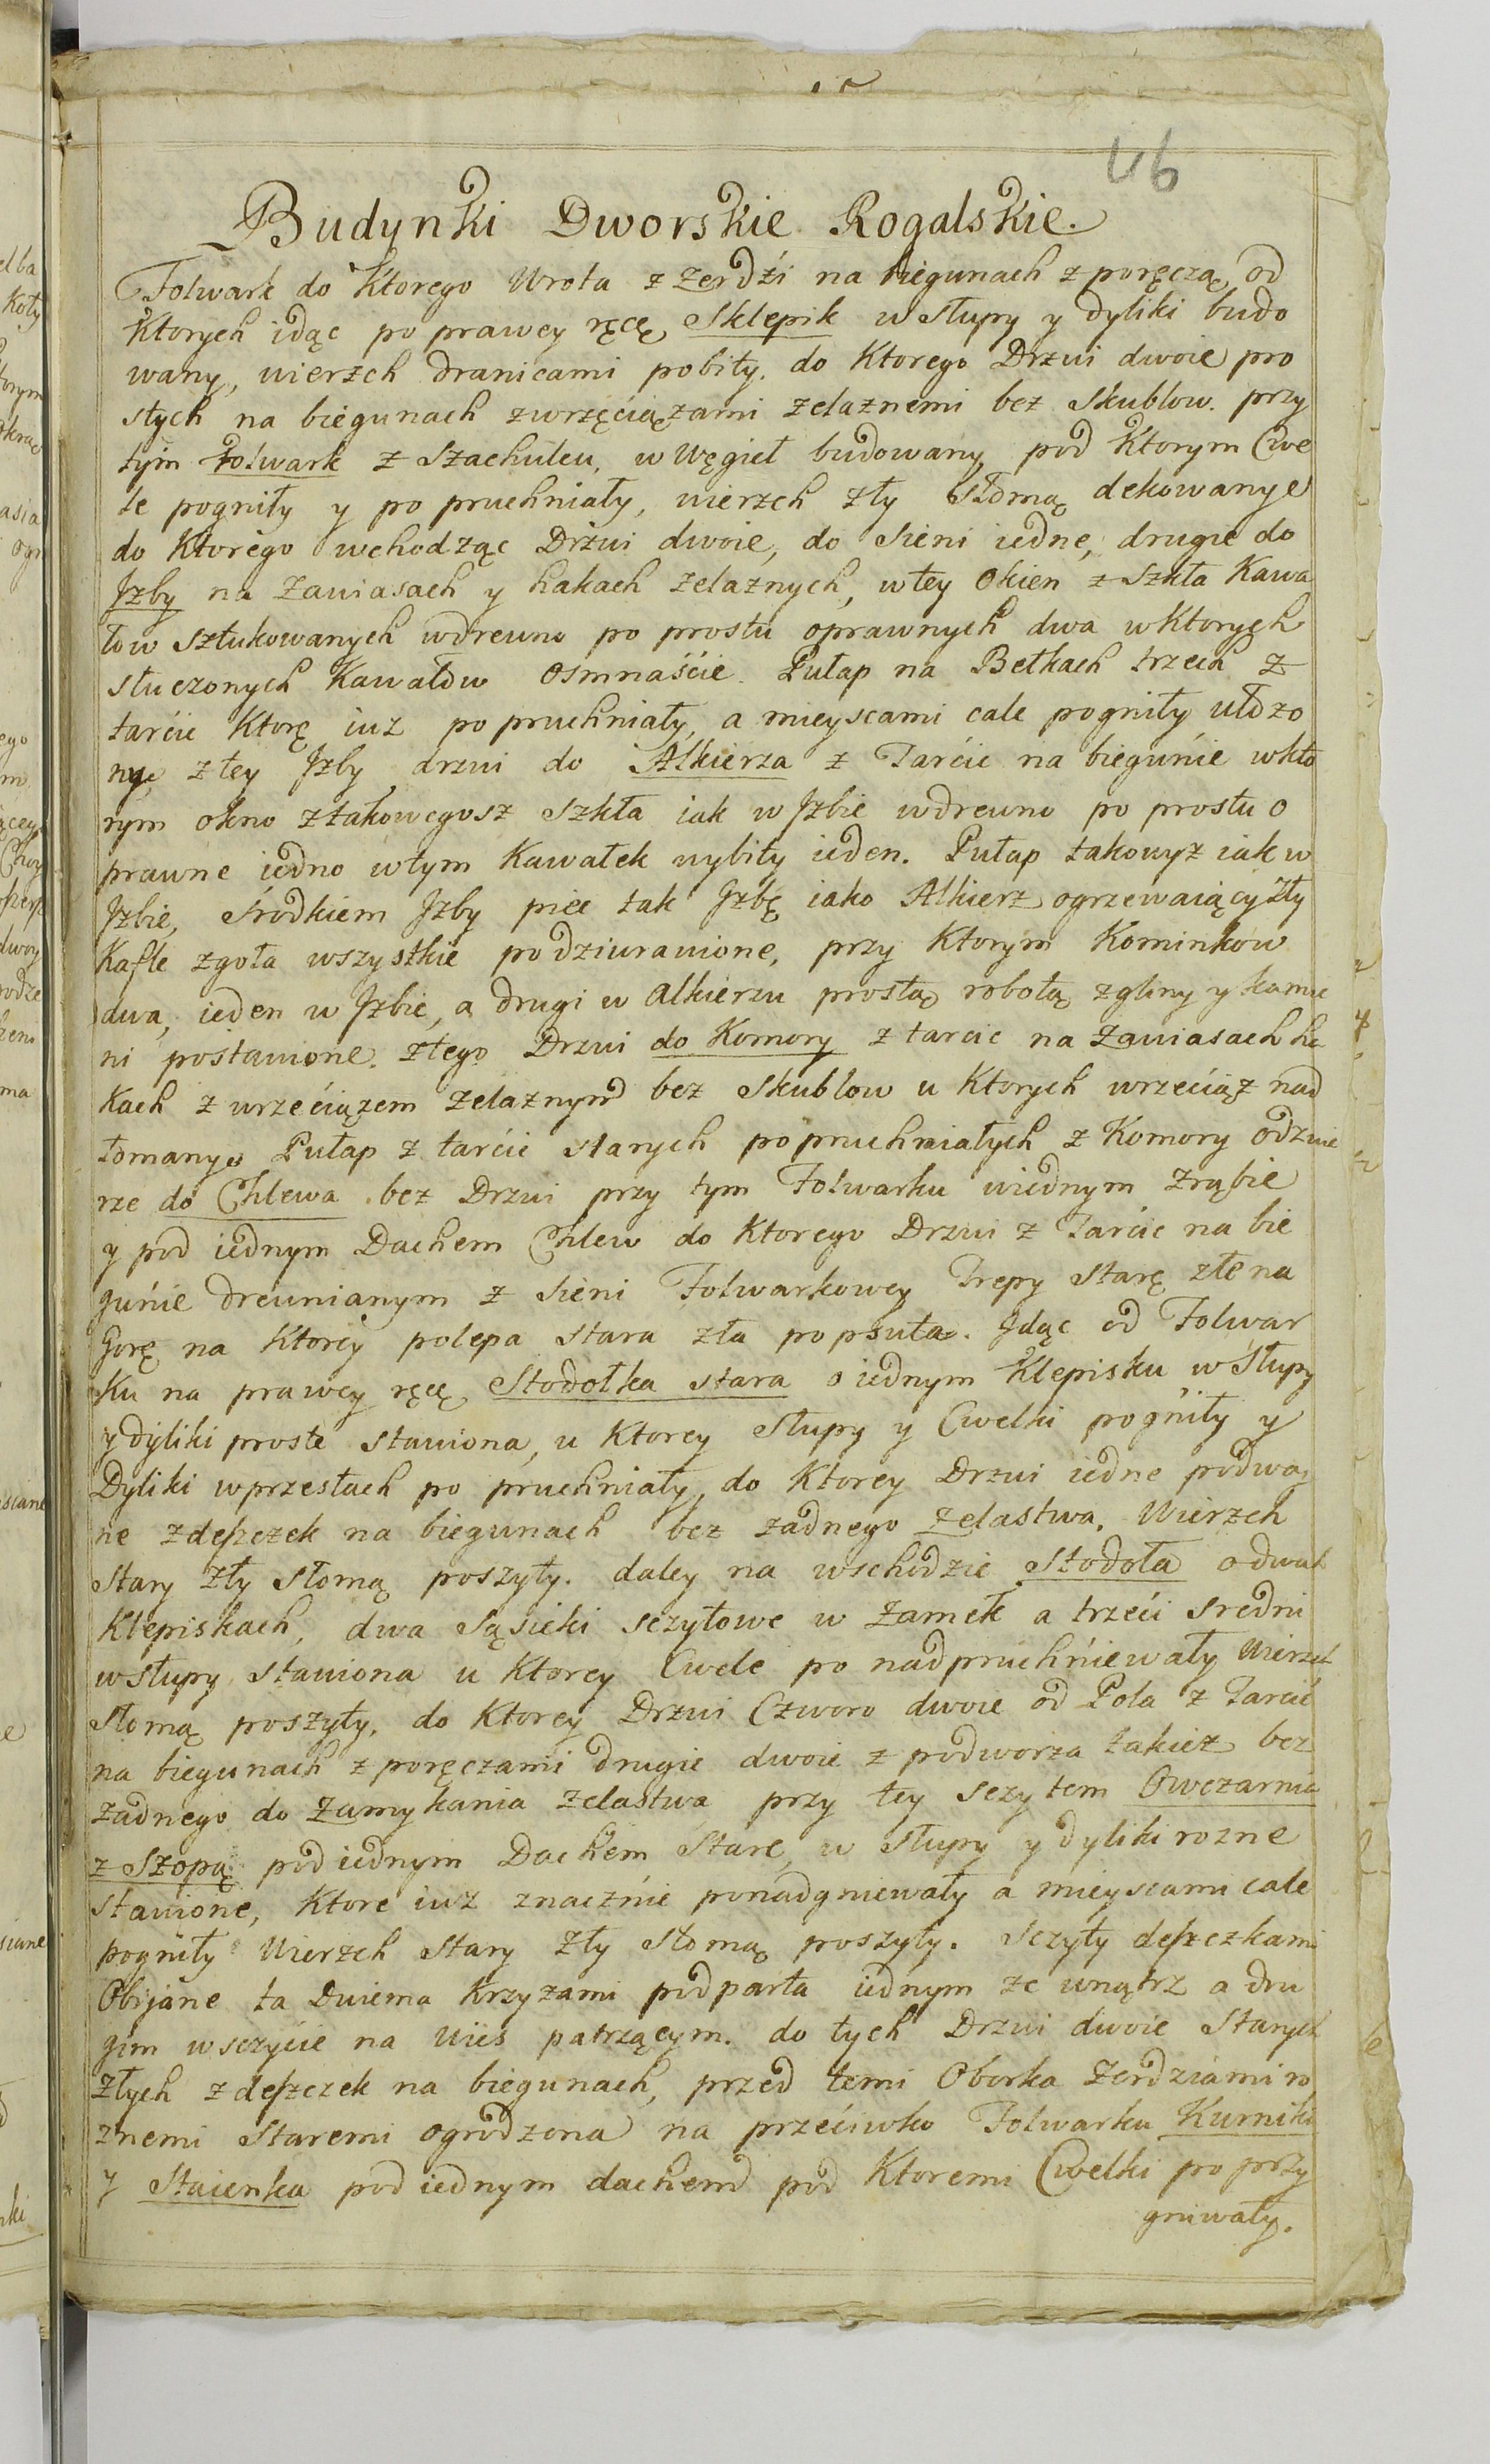 46
Budynki Dworskie Rogalskie.
Folwark do Ktorego Wrota z Zerdźi na biegunach z poręczą, od
Ktorych idąc po prawey ręcę Sklepik w Słupy y dyliki budo
wany, wierzch dranicami pobity. do Ktorego Drzwi dwoie pro
stych na biegunach z wrzęciązami zelaznemi bez Skublow. przy
tym Folwark z Szachulcu, w Węgieł budowany pod Ktorym Cwe
le pogniły y po pruchniały, wierzch zły Słomą dekowany
do Ktorego wchodząc Drzwi dwoie, do Sieni iedne, drugie do
Jzby na Zawiasach y hakach zelaznych, w tey Okien z Szkła Kawa
łow sztukowanych w drewno po prostu oprawnych dwa w Ktorych
stłuczonych Kawałow Osmnaście. Pułap na Belkach trzech z
tarćic Ktorę iuz po pruchniały, a mieyscami cale pogniły ułozo
ny, z tey Jzby drzwi do Alkierza z Tarćic na biegunie w kto
rym okno z takowegosz Szkła iak w Jzbie w drewno po prostu o
prawne iedno w tym Kawałek wybity ieden. Pułap takowyz iak w
Jzbie, Środkiem Jzby piec tak Jzbę iako Alkierz ogrzewaiący zły
Kafle zgoła wszystkie podziurawione, przy Ktorym Kominkow
dwa, ieden w Jzbie, a drugi w Alkierzu prostą robotą z gliny y kamie
ni postawione. z tego Drzwi do Komory z tarcic na Zawiasach ha
kach z wrzećiązem zelaznym bez Skublow u Ktorych wrzeciąz nad
łomany. Pułap z tarćic starych popruchniałych z Komory odzwie
rze do Chlewa bez Drzwi przy tym Folwarku w iednym zrąbie
y pod iednym Dachem Chlew do Ktorego Drzwi z Tarćic na bie
gunie drewnianym z Sieni Folwarkowey Trepy Starę złe na
Gorę na Ktorey polepa Stara zła popsuta. Jdąc od Folwar
Ku na prawey ręcę Stodołka stara o iednym Klepisku w Słupy
y dyliki proste stawiona, u Ktorey Słupy y Cwelki pogniły y
Dyliki w przesłach po pruchniały, do Ktorey Drzwi iedne podwoy
ne z deszczek na biegunach bez zadnego zelastwa. Wierzch
Stary zły Słomą poszyty. daley na wschodzie Stodoła o dwuch
Klepiskach, dwa Sąsieki sczytowe w Zamek a trzeci sredni
w słupy stawiona u Ktorey Cwele po nadpruchniewały Wierzch
Słomą poszyty, do Ktorey Drzwi Czworo dwoie od Pola z Tarcić
na biegunach z poręczami drugie dwoie z podworza takiez bez
zadnego do Zamykania zelastwa przy tey sczytem Owczarnia
z Szopą pod iednym Dachem Stare, w Słupy y dyliki rozne
Stawione, Ktore iuz znacznie ponadgniewały a mieyscami cale
pogniły Wierzch Stary zły Słomą poszyty. Sczyty deszczkami
Obijane ta Dwiema Krzyzami podparta iednym ze wnątrz a dru
gim w sczycie na Wieś patrzącym. do tych Drzwi dwoie Starych
złych z deszczek na biegunach, przed temi Oborka Zerdziami ro
znemi Staremi ogrodzona na przećiwko Folwarku Kurniki
y Staienka pod iednym dachem pod Ktoremi Cwelki po przy
gniwały.